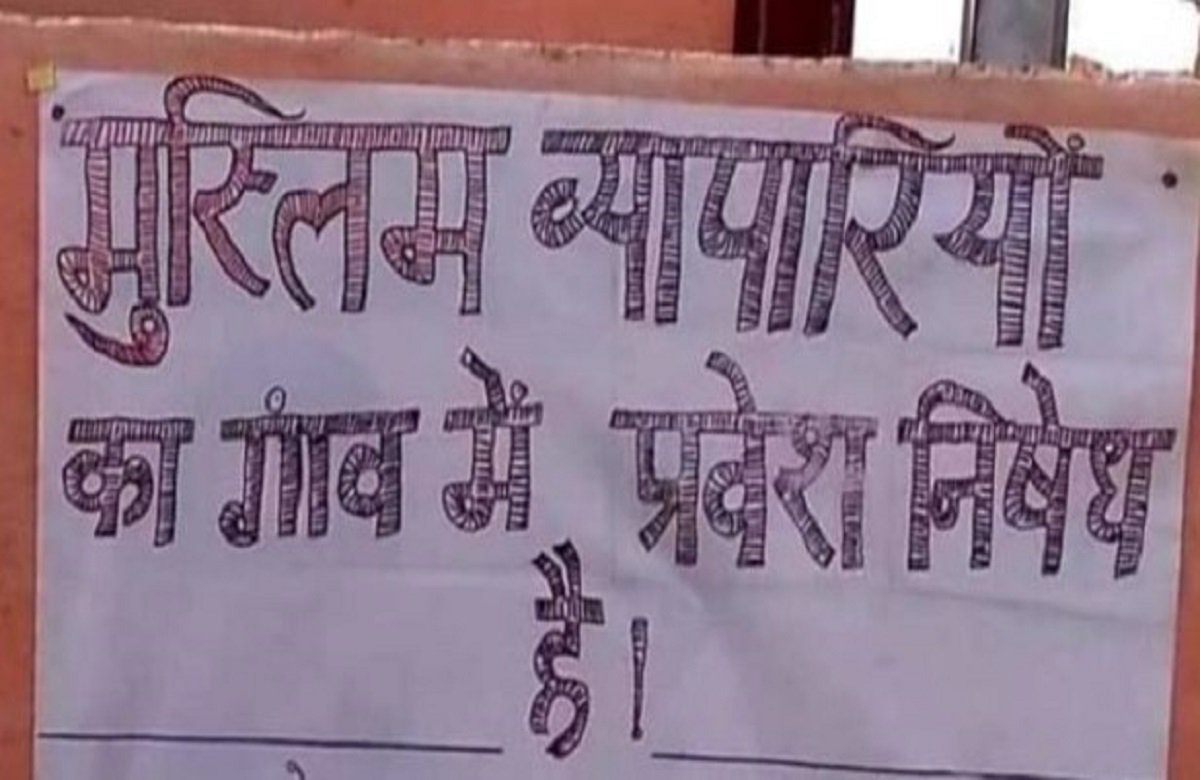 मुस्लिम व्यापारियों
का गांव में प्रवेश निषेध
है।